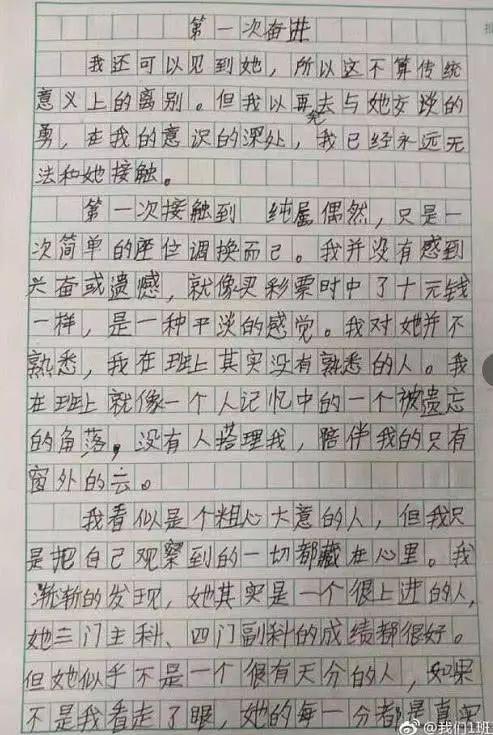 第一次奋进
我还可以见到她，所以这不算传统
意义上的离别。但我以再去与她交谈的
勇，在我的意识的深处，我已经永远无
法和她接触。
第一次接触到 纯属偶然，只是一
次简单的座位调换而已。我并没有感到
兴奋或遗憾，就像买彩票时中了十元钱
一样，是一种平淡的感觉。我对她并不
熟悉，我在班上其实没有熟悉的人。我
在班上就像一个人记忆中的一个被遗忘
的角落，没有人搭理我，陪伴我的只有
窗外的云。
我看似是个粗心大意的人，但我只
是把自己观察到的一切都藏在心里。我
渐渐的发现，她其实是一个很上进的人，
她三门主科、四门副科的成绩都很好。
但她似乎不是一个很有天分的人，如果
不是我看走了眼，她的每一分都是真
@我们1班